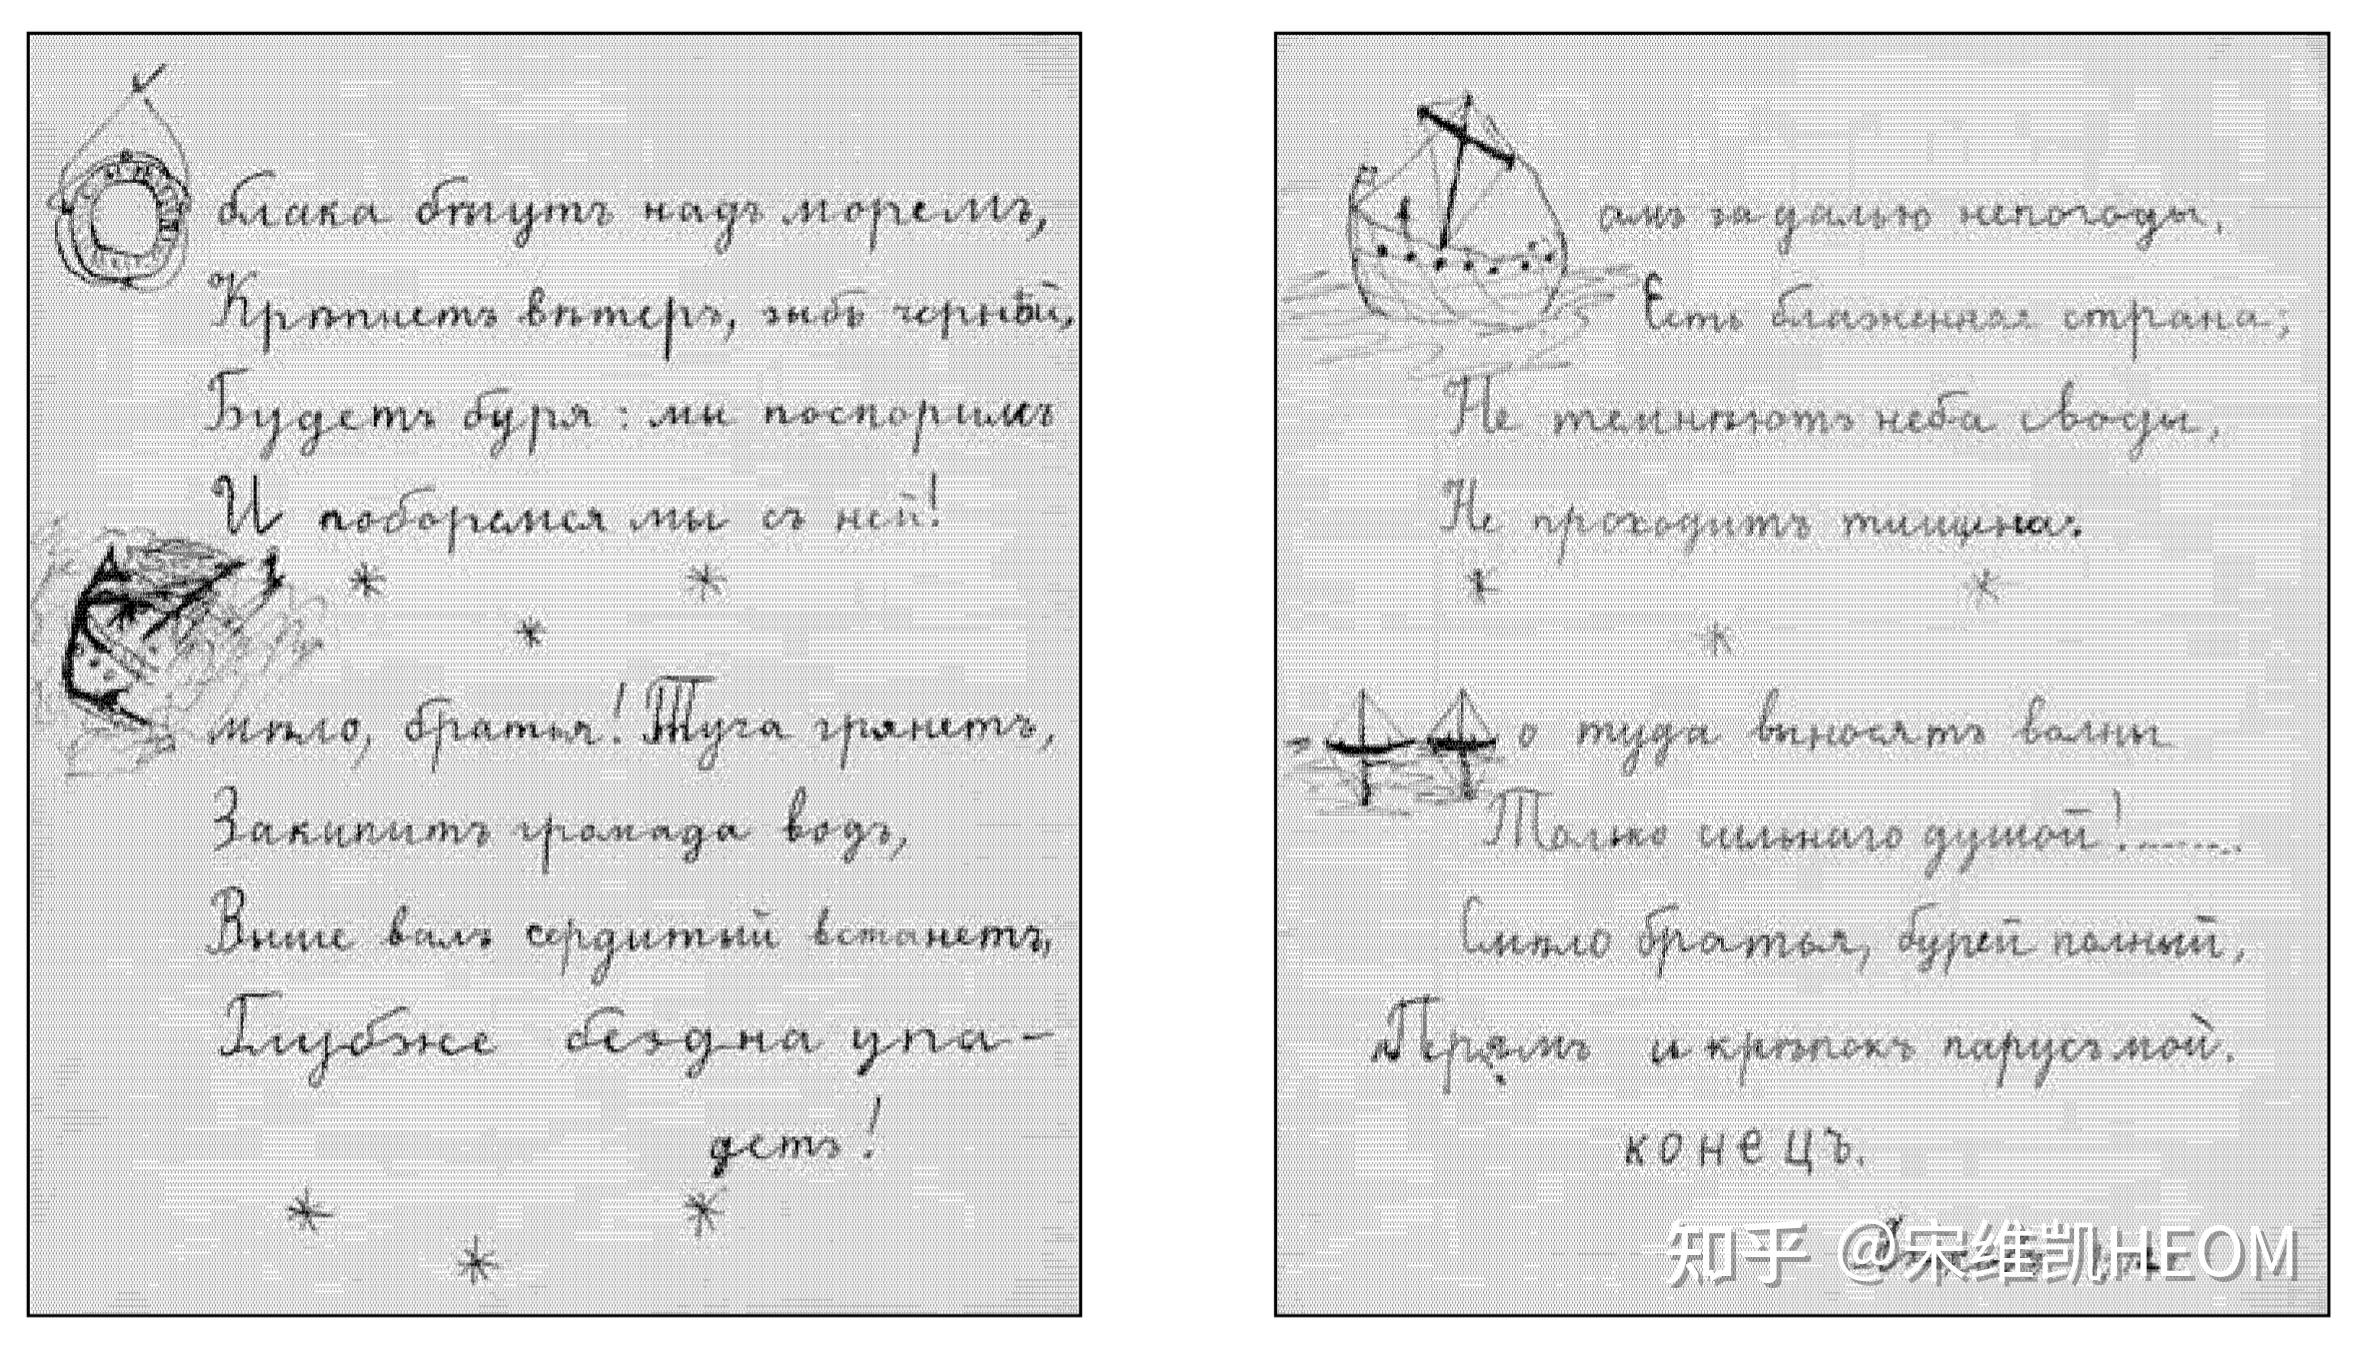 блака бѣгутъ надъ моремъ,
Крѣпнетъ вѣтеръ, зыбь чернѣй,
Будетъ буря: мы поспоримъ
И поборемся мы съ ней!
мѣло, братья! Туча грянетъ,
Закипитъ громада водъ,
Выше валъ сердитый встанетъ,
Глубже бездна упа-
детъ!
амъ за далью непогоды,
Есть блаженная страна;
Не темнѣютъ неба своды,
Не проходитъ тишина.
о туда выносятъ волны
Только сильнаго душой!........
Смѣло братья, бурей полный,
Прямъ и крѣпокъ парусъ мой.
конецъ.
知乎 @宋维凯HEOM